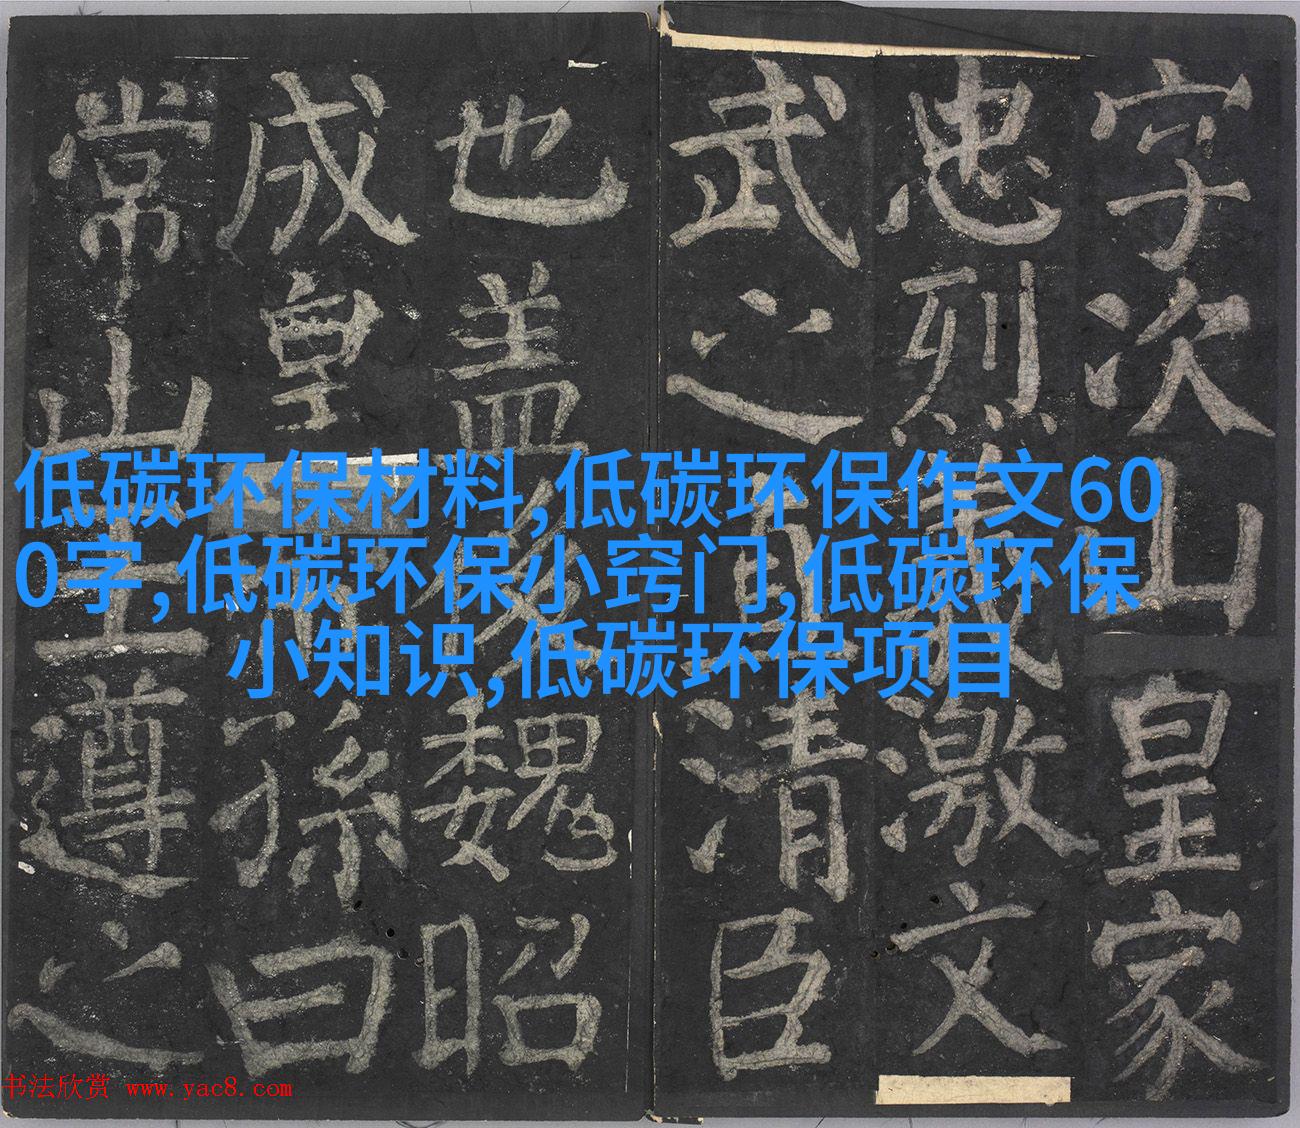 字次山皇家
忠烈義激文
武之直清臣
也盖後魏昭
成皇孫曰
常山王遵之
低碳环保材料,低碳环保作文60
0字,低碳环保小窍门,低碳环保
小知识,低碳环保项目
书法欣赏 www.yac8.com